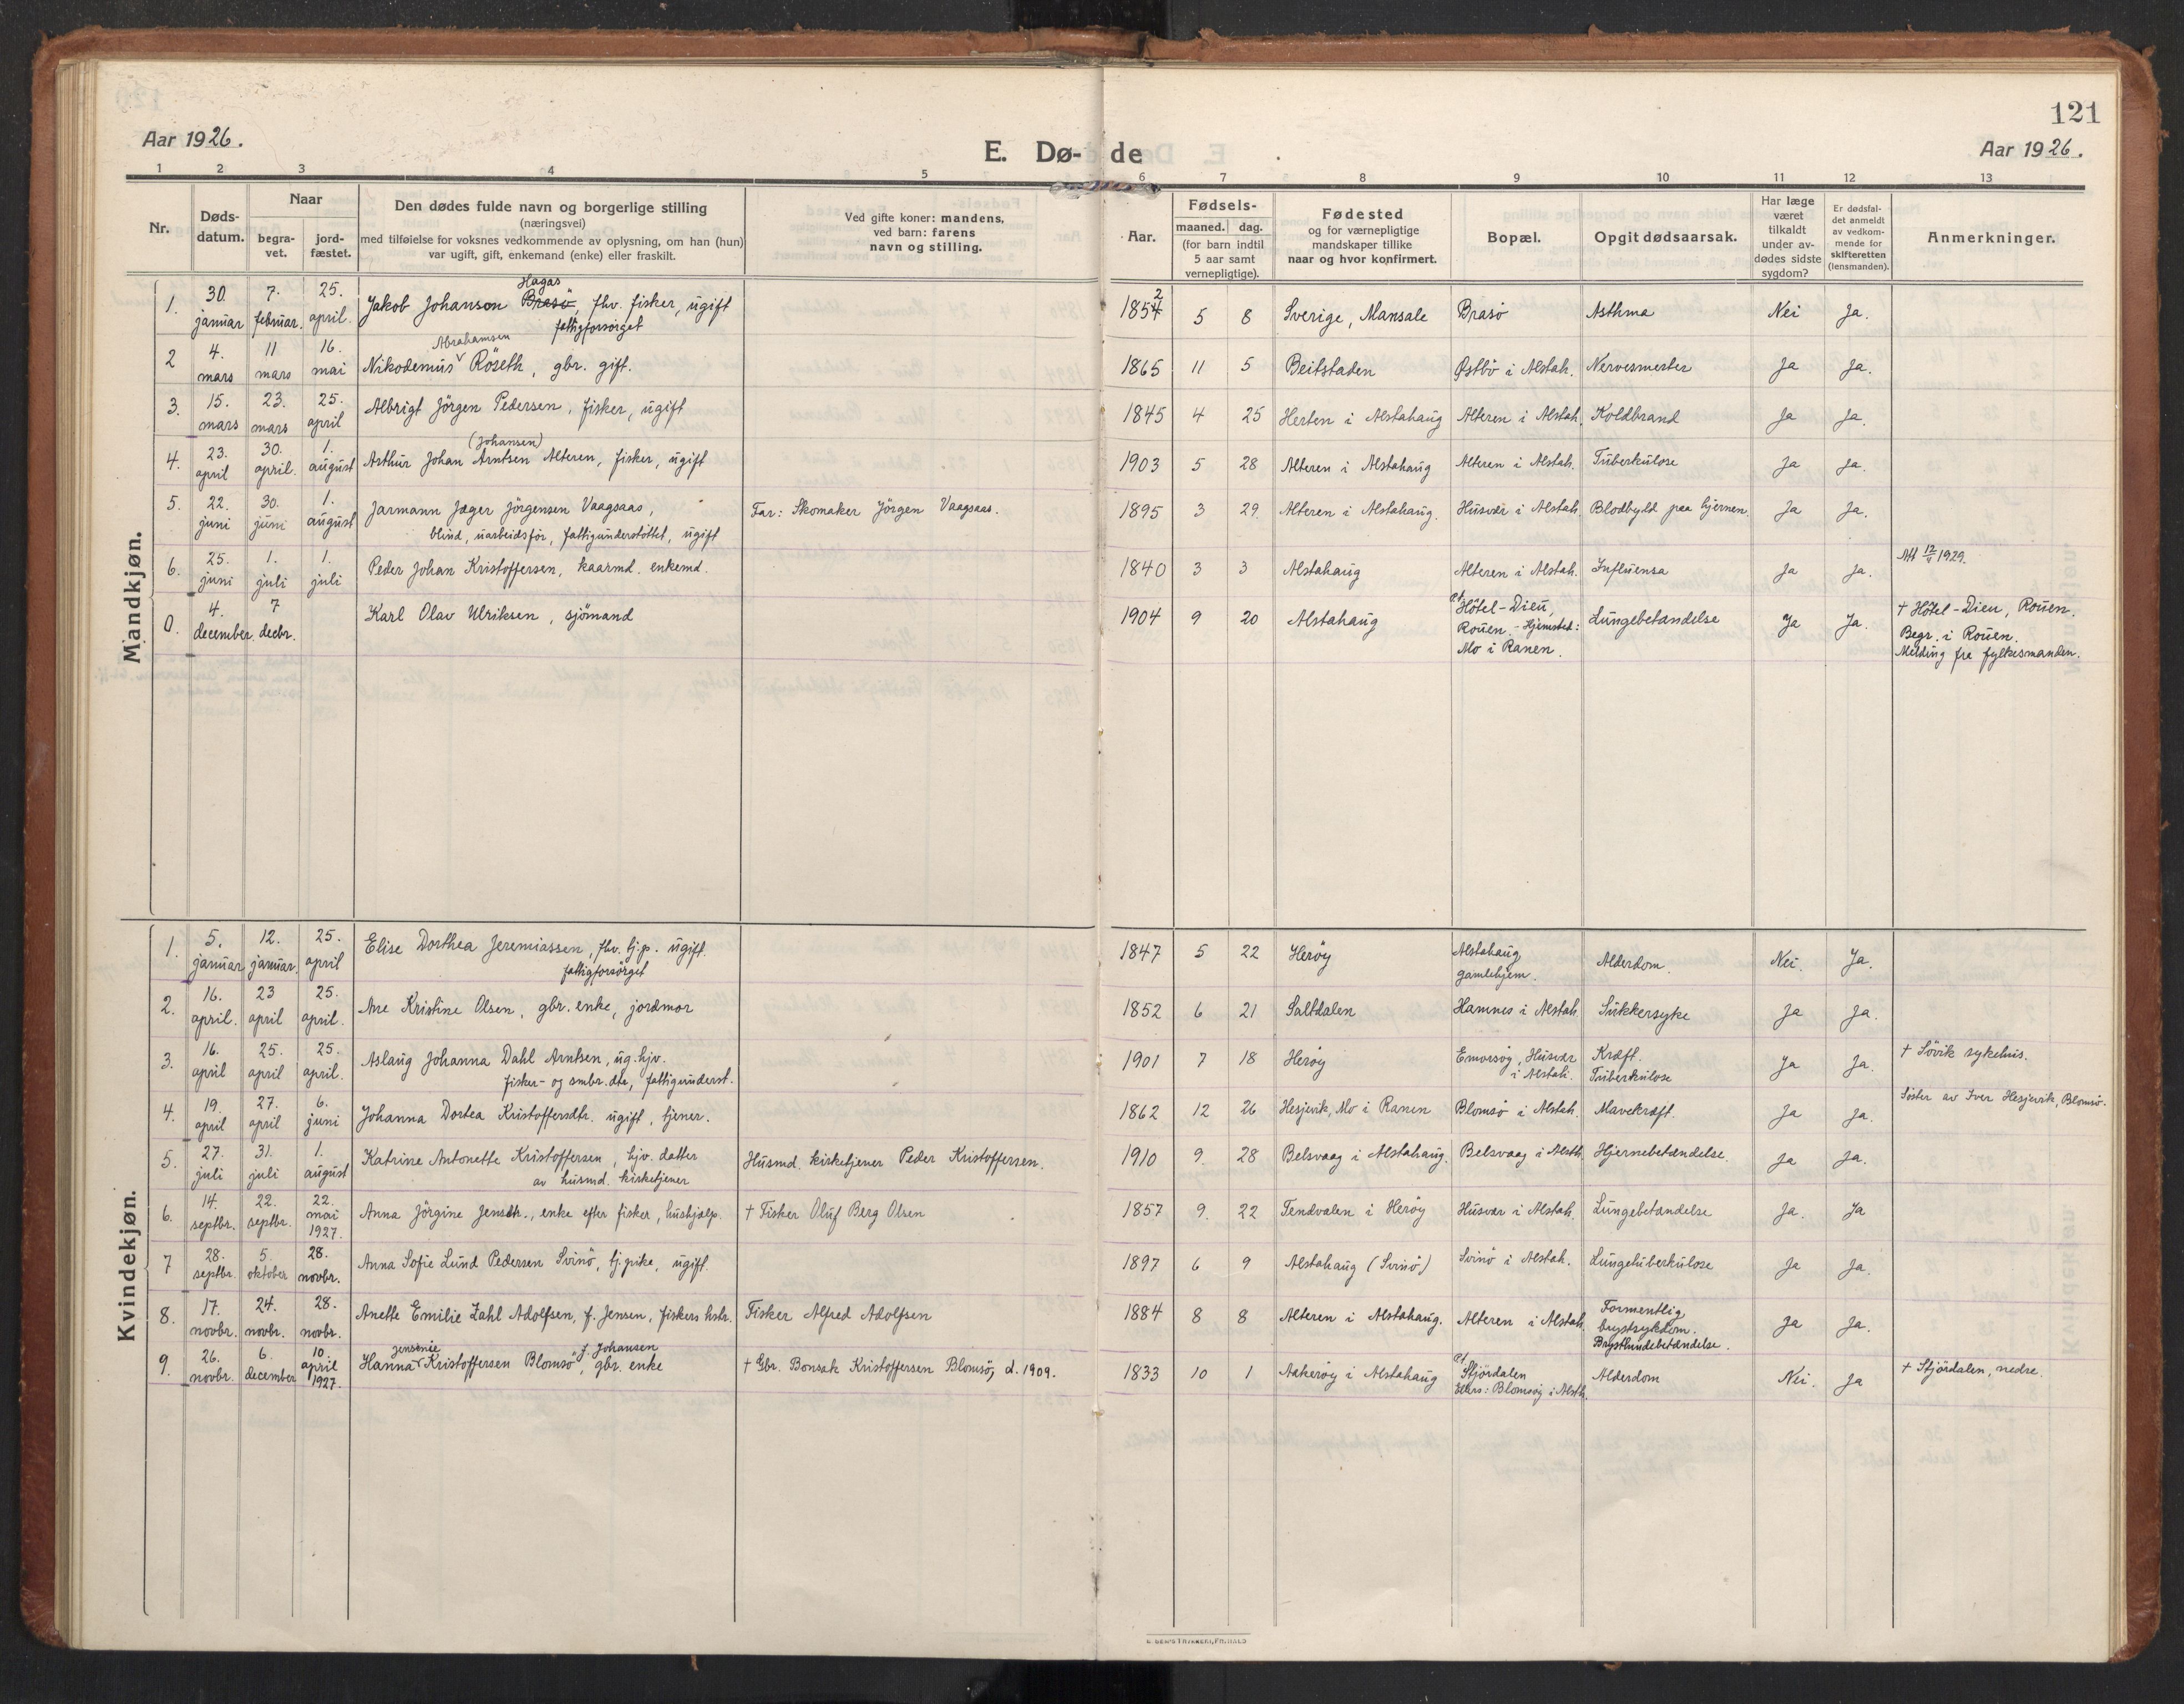 121
Aar 1926.
E. Dø-de
Aar 1926.
1 2 3 4 5 6 7 8 9 10 11 12 13
Nr.
Døds-
datum.
Naar
begra-
vet.
jord-
fæstet.
Den dødes fulde navn og borgerlige stilling
(næringsvei)
med tilføielse for voksnes vedkommende av oplysning, om han (hun)
var ugift, gift, enkemand (enke) eller fraskilt.
Ved gifte koner: mandens,
ved barn: farens
navn og stilling.
Aar.
Fødsels-
maaned. dag.
(for barn indtil
5 aar samt
vernepligtige).
Fødested
og for værnepligtige
mandskaper tillike
naar og hvor konfirmert.
Bopæl.
Opgit dødsaarsak.
Har læge
været
tilkaldt
under av-
dødes sidste
sygdom?
Er dødsfal-
det anmeldt
av vedkom-
mende for
skifteretten
(lensmanden).
Anmerkninger.
Mandkjøn.
1. 30. januar 7. februar. 25. april. Jakob Johanson Brasö, Hagas fhv. fisker, ugift
fattigforsörget
1854 2 5 8 Sverige, Mansale Brasö Asthma Nei Ja.
2 4. mars 11 mars 16. mai Nikodemus Abrahamsen Röseth, gbr. gift. 1865 11 5 Beitstaden Østbö i Alstah. Nervesmerter Ja Ja.
3. 15. mars 23. mars 25. april Albrigt Jörgen Pedersen, fisker, ugift 1845 4 25 Herten i Alstahaug Alteren i Alstah. Koldbrand Ja Ja.
4. 23. april 30. april. 1. august Arthur Johan (Johansen) Arntsen Alteren, fisker, ugift 1903 5 28 Alteren i Alstahaug Alteren i Alstah. Tuberkulose Ja Ja.
5. 22. juni 30. juni 1. august Jarmann Jæger Jörgensen Vaagsaas,
blind, uarbeidsför, fattigunderstöttet, ugift
Far: Skomaker Jörgen Vaagsaas. 1895 3 29. Alteren i Alstahaug. Husvær i Alstah. Blodbyld paa hjernen. Ja Ja.
6. 25. juni 1. juli 1. juli Peder Johan Kristoffersen, kaarmd. enkemd. 1840 3 3 Alstahaug Alteren i Alstah. Influensa Ja Ja. Att 12/11 1929.
0. 4. december. 7 decbr. Karl Olav Ulriksen, sjömand 1904 9 20 Alstahaug p.t. Hôtel-Dieu,
Rouen. - Hjemsted:
Mo i Ranen.
Lungebetændelse Ja Ja. † Hôtel-Dieu, Rouen.
Begr. i Rouen.
Melding fra fylkesmanden.
Kvindekjøn.
1. 5. januar 12. januar. 25. april Elise Dorthea Jeremiassen, fhv. tj.p. ugift.
fattigforsörget
1847 5 22 Heröy Alstahaug
gamlehjem.
Alderdom. Nei. Ja.
2. 16. april. 23 april 25. april. Ane Kristine Olsen, gbr. enke, jordmor 1852 6 21 Saltdalen Hamnes i Alstah. Sukkersyke Ja Ja.
3. 16. april 25. april 25. april. Aslaug Johanna Dahl Arntsen, ug. hjv.
fisker- og smbr. dtr, fattigunderst.
1901 7 18 Heröy Emarsöy, Husvær
i Alstah.
Kræft.
Tuberkulose
Ja Ja. † Sövik sykehus.
4. 19. april 27. april 6. juni Johanna Dortea Kristoffersdtr. ugift, tjener. 1862 12 26 Hesjevik, Mo i Ranen Blomsö i Alstah. Mavekræft. Ja Ja. Söster av Iver Hesjevik, Blomsö.
5. 27. juli 31. juli 1. august Katrine Antonette Kristoffersen, hjv. datter
av husmd. kirketjener
Husmd. kirketjener Peder Kristoffersen. 1910 9. 28 Belsvaag i Alstahaug. Belsvaag i Alsth. Hjernebetændelse. Ja Ja.
6. 14. septbr. 22. septbr. 22. mai 1927. Anna Jörgine Jensdtr., enke efter fisker, hushjælp. † Fisker Oluf Berg Olsen 1857 9. 22 Tendvalen i Heröy Husvær i Alstah. Lungebetændelse Ja. Ja
7 28. septbr. 5. oktober 28. novbr. Anna Sofie Lund Pedersen Svinö, tj.pike, ugift. 1897 6 9 Alstahaug (Svinö) Svinö i Alstah. Lungetuberkulose Ja Ja.
8. 17. novbr. 24. novbr. 28. novbr. Anette Emilie Zahl Adolfsen, f. Jensen, fiskers hstr. Fisker Alfred Adolfsen 1884 8 8 Alteren i Alstahaug. Alteren i Alstah. Formentlig
brystsykdom.
Brysthindebetændelse.
Ja Ja.
9. 26. novbr. 6. december 10. april 1927. Hanna Jensenie Kristoffersen Blomsö, f. Johansen gbr. enke † Gbr. Bonsak Kristoffersen Blomsö, d. 1909. 1833 10 1 Aakeröy i Alstahaug p.t. Stjördalen
Ellers: Blomsöy i Alsth.
Alderdom Nei. Ja † Stjördalen, nedre.